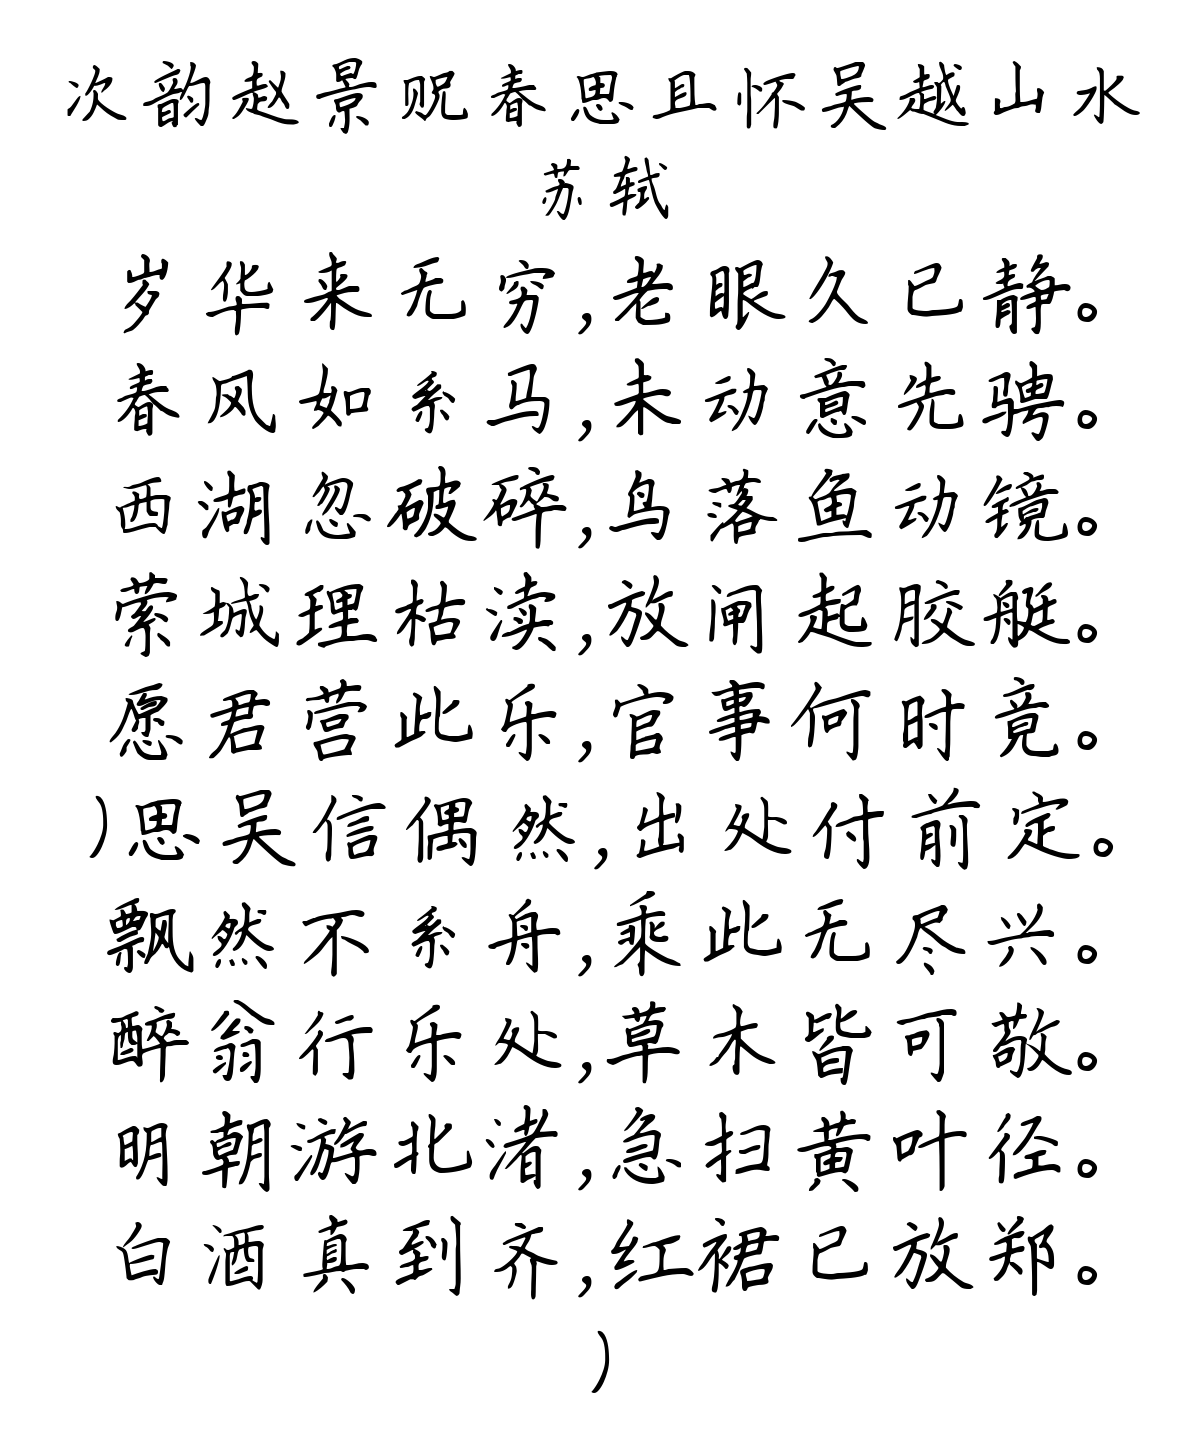 次韵赵景贶春思且怀吴越山水
苏轼
岁华来无穷,老眼久已静。
春风如系马,未动意先骋。
西湖忽破碎,鸟落鱼动镜。
萦城理枯渎,放闸起胶艇。
愿君营此乐,官事何时竟。
)思吴信偶然,出处付前定。
飘然不系舟,乘此无尽兴。
醉翁行乐处,草木皆可敬。
明朝游北渚,急扫黄叶径。
白酒真到齐,红裙已放郑。
)